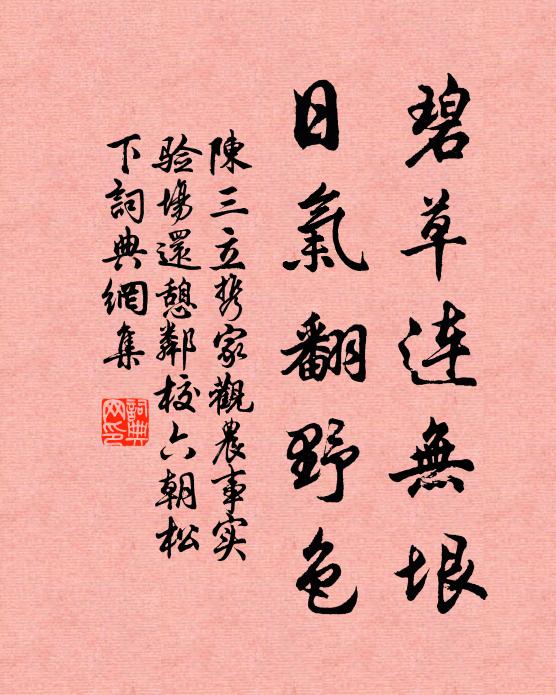 碧草連無垠
日氣翻野色
陳三立携家觀農事实
验場還憩鄰校六朝松
下詞典網集
詞典
网印